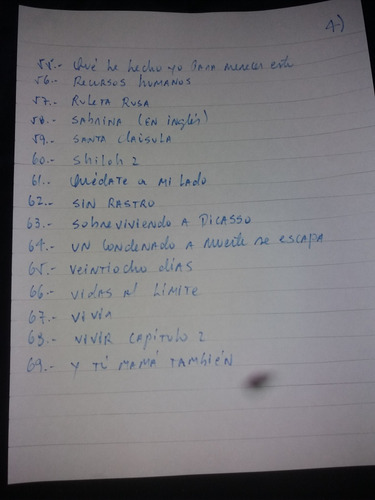 4)
55.- Qué he hecho yo para merecer esto
56.- Recursos humanos
57.- Ruleta Rusa
58.- Sabrina (en inglés)
59.- Santa Cláusula
60.- Shiloh 2
61.- Quédate a mi lado
62.- Sin rastro
63.- Sobreviviendo a Picasso
64.- Un condenado a muerte se escapa
65.- Veintiocho días
66.- Vidas al límite
67.- Vivir
68.- Vivir capítulo 2
69.- Y tú mamá también